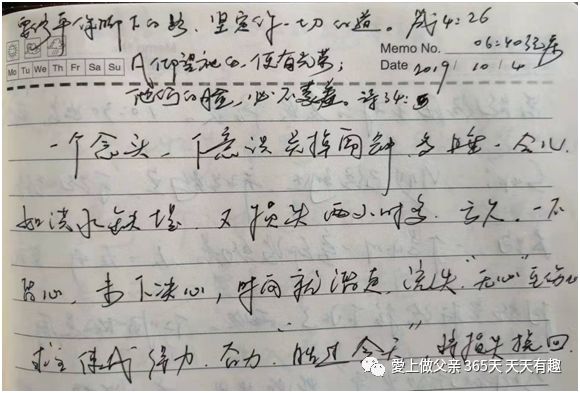 要修平你脚下的路，坚定你一切的道。箴4：26
Memo No. 06:40记录
Mo Tu We Th Fr Sa Su
Date 2019 / 10 / 4
凡仰望祂的，便有光荣；
他们的脸，必不蒙羞。诗34：5
一个念头，一个意识关掉闹钟，多睡一会儿
如洪水决堤，又损失两小时多，主呀，一不
留心，未下决心，时间就溜走，流失，"无心"
求主使我得力，奋力，"胜过今天"，将损失换回
愛上做父亲 365天 天天有趣